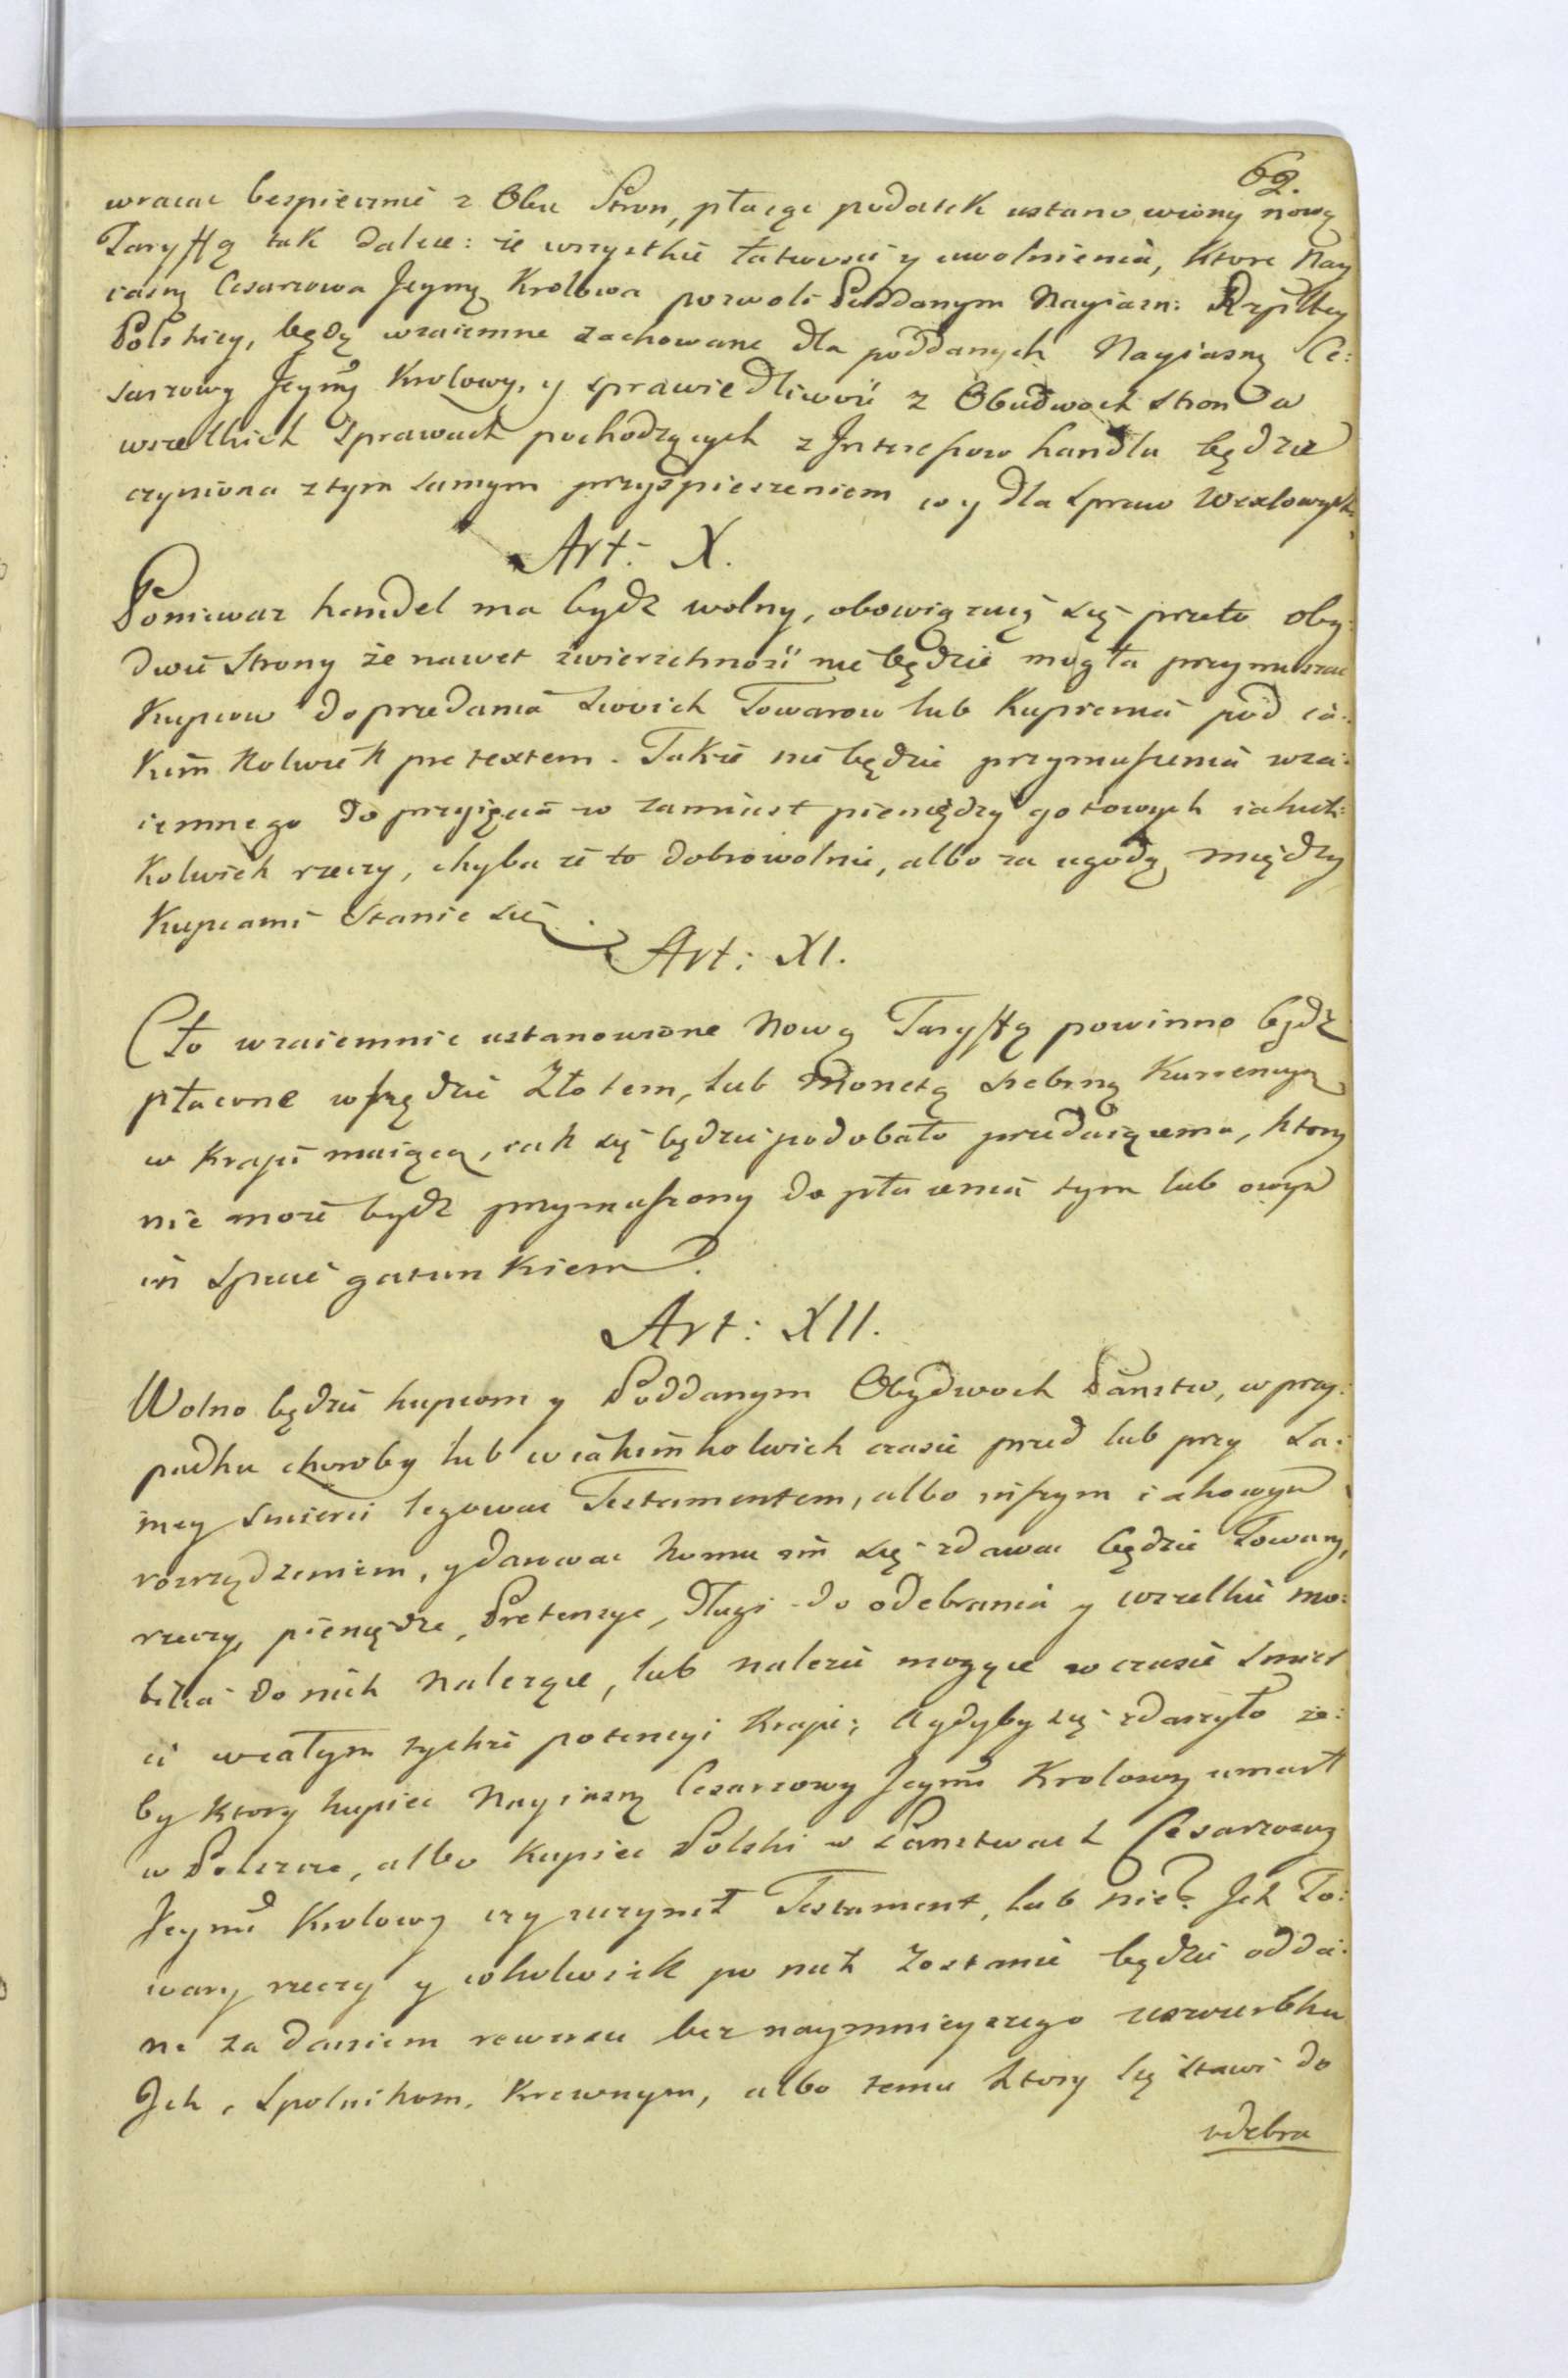 62.
wracac bespiecznie z Obu Stron, płacąc podatek ustanowiony nową
Taryffą tak dalece: że wszystkie łatwosci y uwolnienia, ktore Nay
iasną Cesarzowa Jeymć Krolowa pozwoli Poddanym Nayiasn: Rzpltey
Polskiey, będą wzaiemne zachowane dla poddanych Nayiasny Ce:
sarzowy Jeymć Krolowy, y sprawiedliwosć z Obudwoch Stron w
wszelkich Sprawach pochodzących z Interessow handlu będzie
czyniona ztym samym przyśpieszeniem co y dla Spraw Wexlowych.
Art: X.
Poniewaz handel ma bydz wolny, obowiązuią się przeto oby:
dwie Strony że nawet zwierzchność nie będzie mogła przymuszac
Kupcow do przedania swoich Towarow lub Kupienia pod ia:
kim kolwiek pretextem. Takze nie będzie przymuszenia wza:
iemnego do przyięcia w zamiast pieniędzy gotowych iakich:
kolwiek rzeczy, chyba że to dobrowolnie, albo za ugodą między
Kupcami Stanie się.
Art: XI.
Cło wzaiemnie ustanowione Nową Taryffą powinno bydz
płacone wszędzie Złotem, lub Monetą srebrną Kurrencyą
w Kraju maiącą, iak się będzie podobało przedaiącemu, ktory
nie może bydz przymuszony do płacenia tym lub owym
in specie gatunkiem.
Art: XII.
Wolno będzie kupcom y Poddanym Obydwoch Państw, w przy:
padku choroby lub w iakimkolwiek czasie przed lub przy sa:
mey smierci legowac Testamentem, albo inszym iakowym
rozrządzeniem, y darowac komu im się zdawac będzie Towary,
rzeczy, pieniądze, Pretensye, Długi do odebrania y wszelkie mo:
bilia do nich Nalezące, lub nalezeć mogące w czasie smier
ci w całym tychże potencyi Kraju; A gdyby się zdarzyło ze:
by ktory kupiec Nayiasny Cesarzowy Jeymć Krolowy umarł
w Polszcze, albo Kupiec Polski w Panstwach Cesarzowy
Jeymć Krolowy czy uczynił Testament, lub nie? Jch To:
wary rzeczy y cokolwiek po nich Zostanie będzie odda:
ne za daniem rewersu bez naymnieyszego uszczerbku
Jch, Spolnikom, Krewnym, albo temu ktory się stawi do
odebra